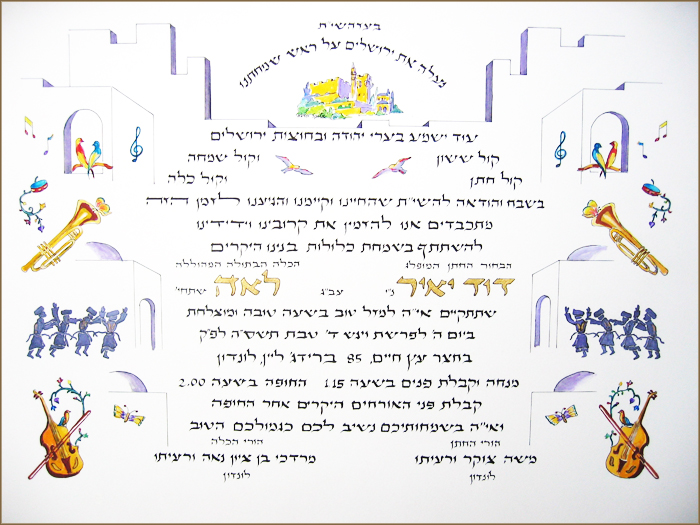 בעזהשי"ת
נעלה את ירושלים על ראש שמחתנו
עוד ישמע בערי יהודה ובחוצות ירושלים
קול ששון וקול שמחה
קול חתן וקול כלה
בשבח והודאה להשי"ת שהחיינו וקיימנו והגיענו לזמן הזה
מתכבדים אנו להזמין את קרובינו וידידינו
להשתתף בשמחת כלולות בנינו היקרים
הבחור החתן המופלג הכלה הבתולה המהוללה
דוד יאיר ני" עב"ג לאה שתחי'
שתתקיים אי"ה למזל טוב בשעה טובה ומוצלחת
ביום ה' לפרשת ויגש ד' טבת תשס"ה לפ"ק
בחצר עץ חיים, 85 ברידג' ליין, לונדון
מנחה וקבלת פנים בשעה 1.15 החופה בשעה 2.00
קבלת פני האורחים היקרים אחר החופה
ואי"ה בשמחותיכם נשיב לכם כגמולכם הטוב
הורי החתן הורי הכלה
משה צוקר ורעיתו מרדכי בן ציון נאה ורעיתו
לונדון לונדון